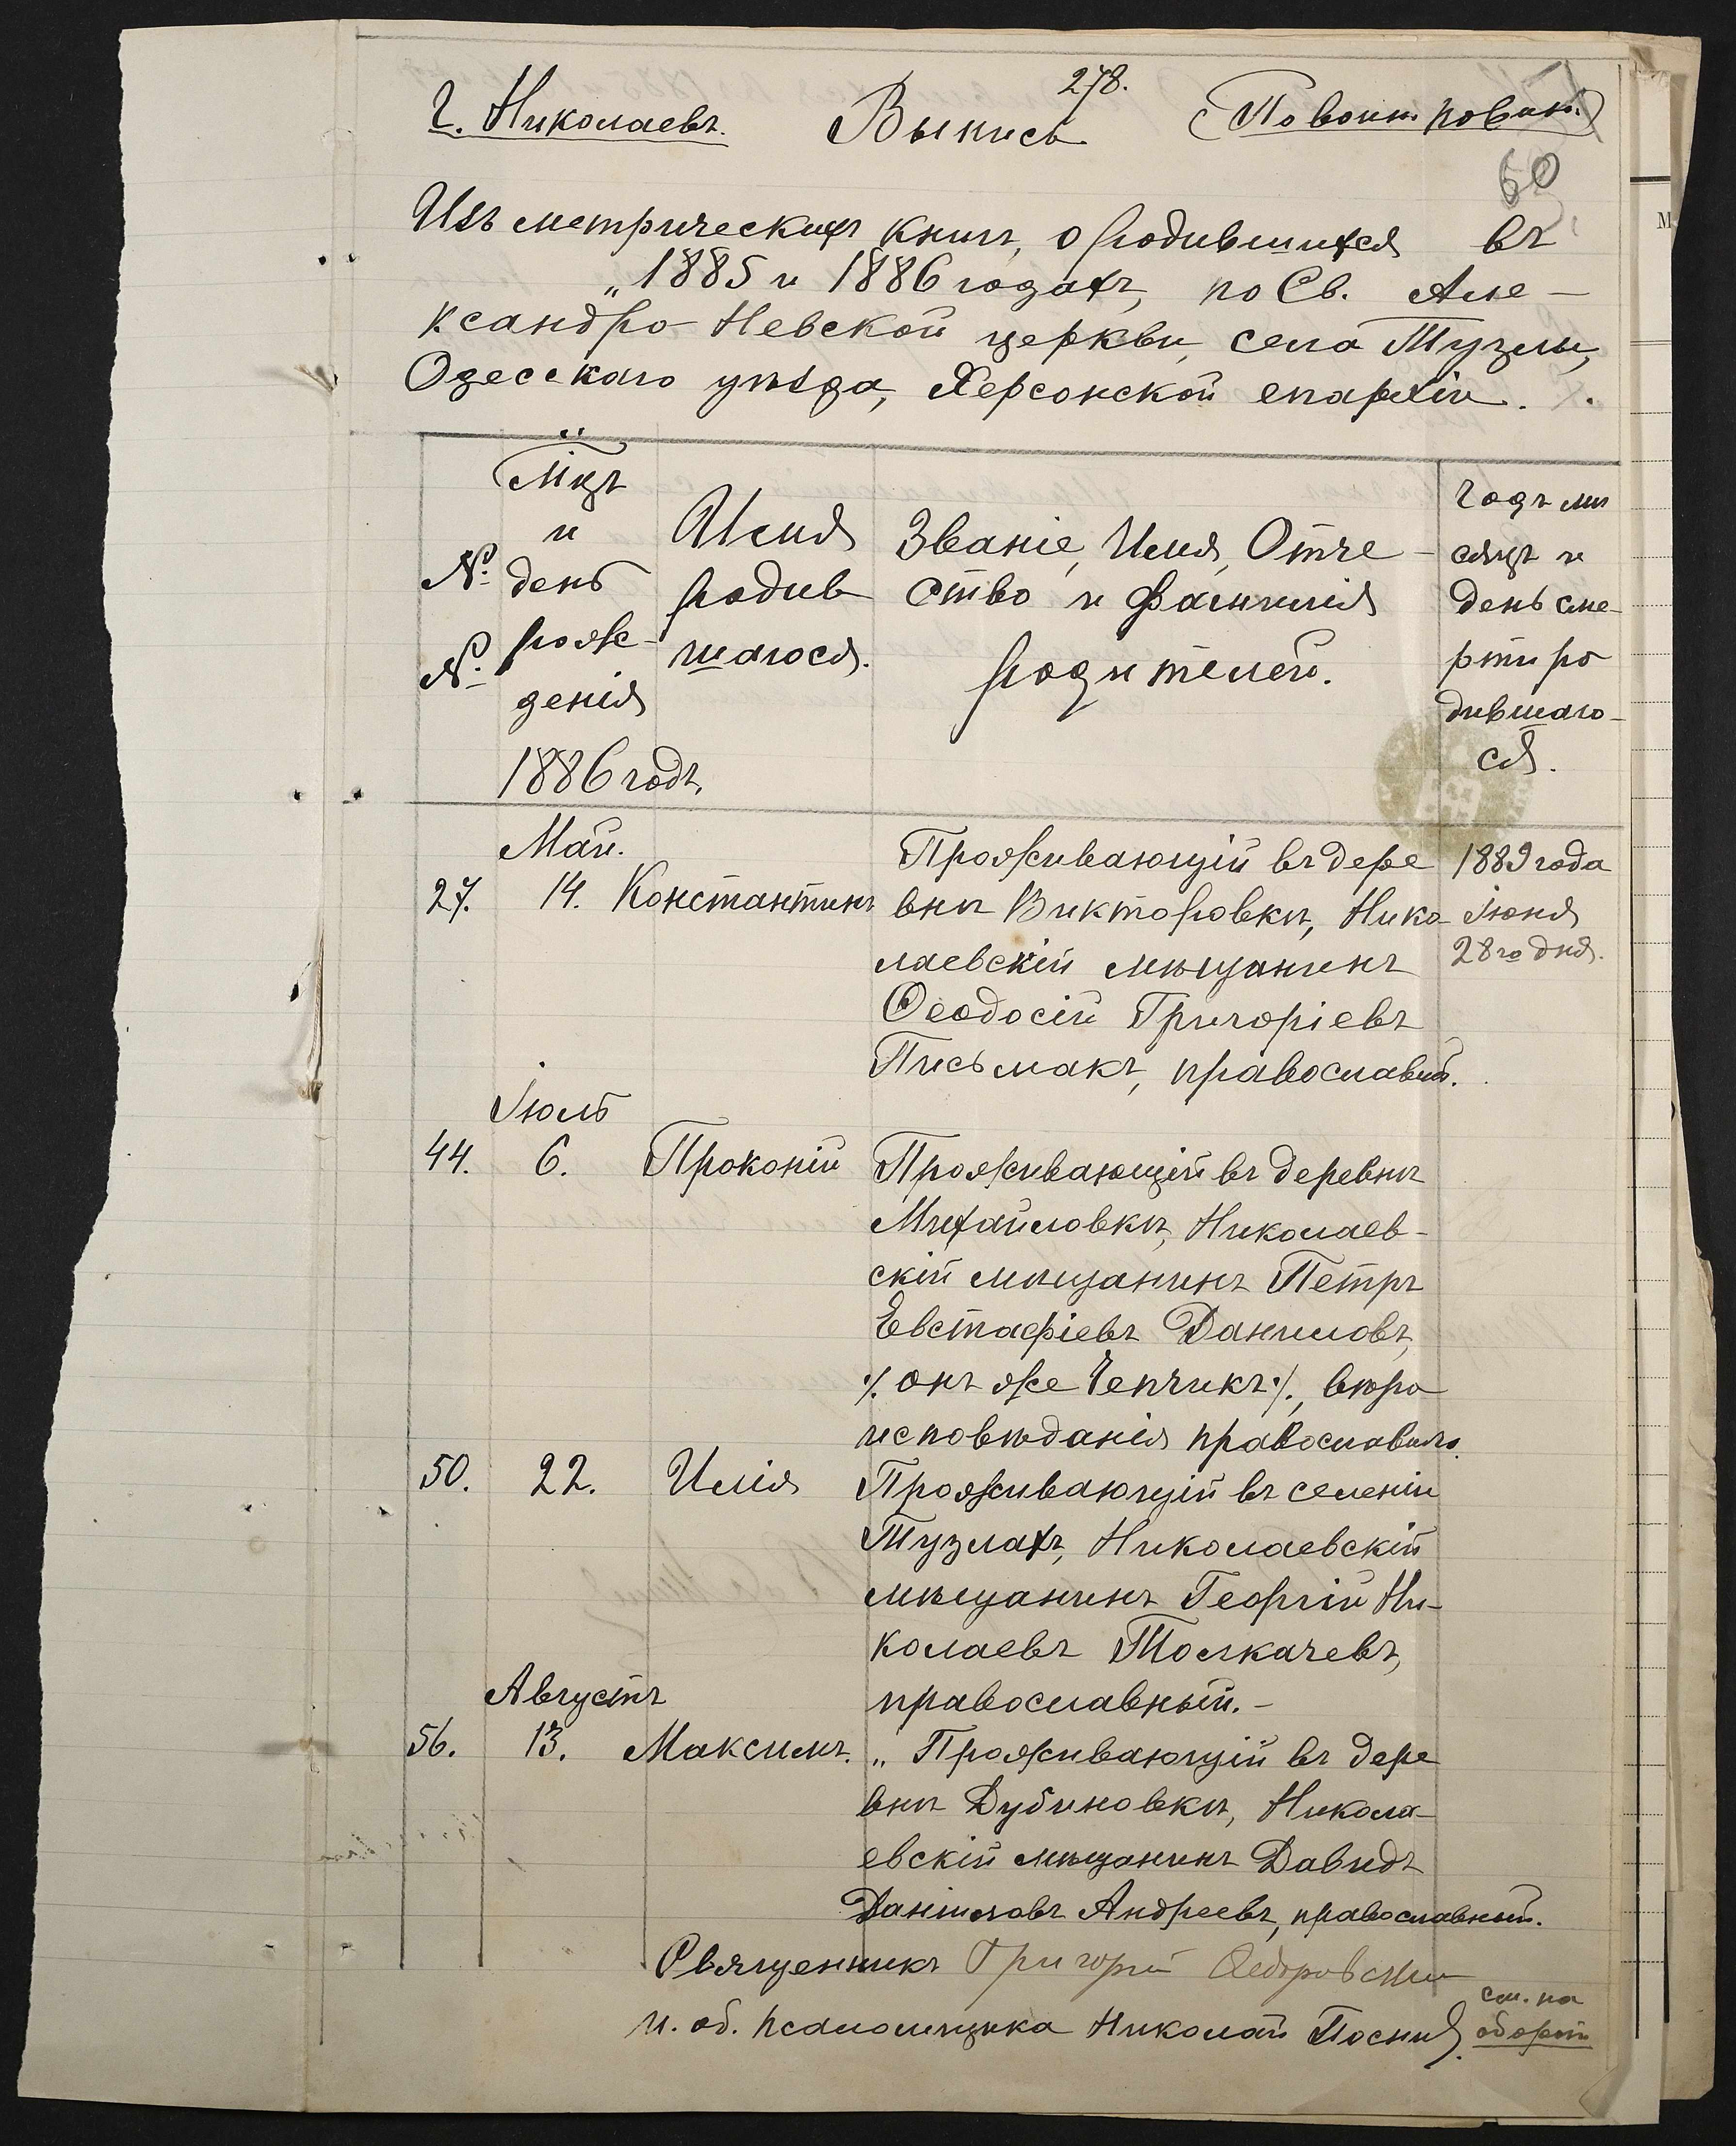 278.
г. Николаевъ. Выпись (По воин. повин.)
60
Изъ метрическихъ книгъ, о родившихся въ
„1885 и 1886 годахъ, по Св. Але-
ксандро-Невской церкви, села Тузлы,
Одесскаго уѣзда, Херсонской епархіи.
№
№
Мцъ
и
день
рож-
денія
1886 годъ.
Имя
родив
шагося.
Званіе, Имя, Отче-
ство и фамилія
родителей.
Годъ мѣ
сяцъ и
день сме-
рти ро
дившаго-
ся.
Май.
27. 14. Константинъ
Проживающій въ дере
внѣ Викторовкѣ, Нико-
лаевскій мѣщанинъ
Ѳеодосій Григоріевъ
Письмакъ, православный.
1889 года
Іюня
28го дня.
Іюль
44. 6. Прокопій Проживающій въ деревнѣ
Михайловкѣ, Николаев-
скій мѣщанинъ Петръ
Евстафіевъ Даниловъ,
./. онъ же Чепчикъ ./., вѣро
исповѣданія православнаго.
50. 22. Илія Проживающій въ селеніи
Тузлахъ, Николаевскій
мѣщанинъ Георгій Ни-
колаевъ Толкачевъ,
православный.-
Августъ
56. 13. Максимъ. „ Проживающій въ дере
внѣ Дубиновкѣ, Никола-
евскій мѣщанинъ Давидъ
Даніиловъ Андреевъ, православный.
Священникъ Григорій
и. об. псаломщика Николай
см. на
оборотѣ